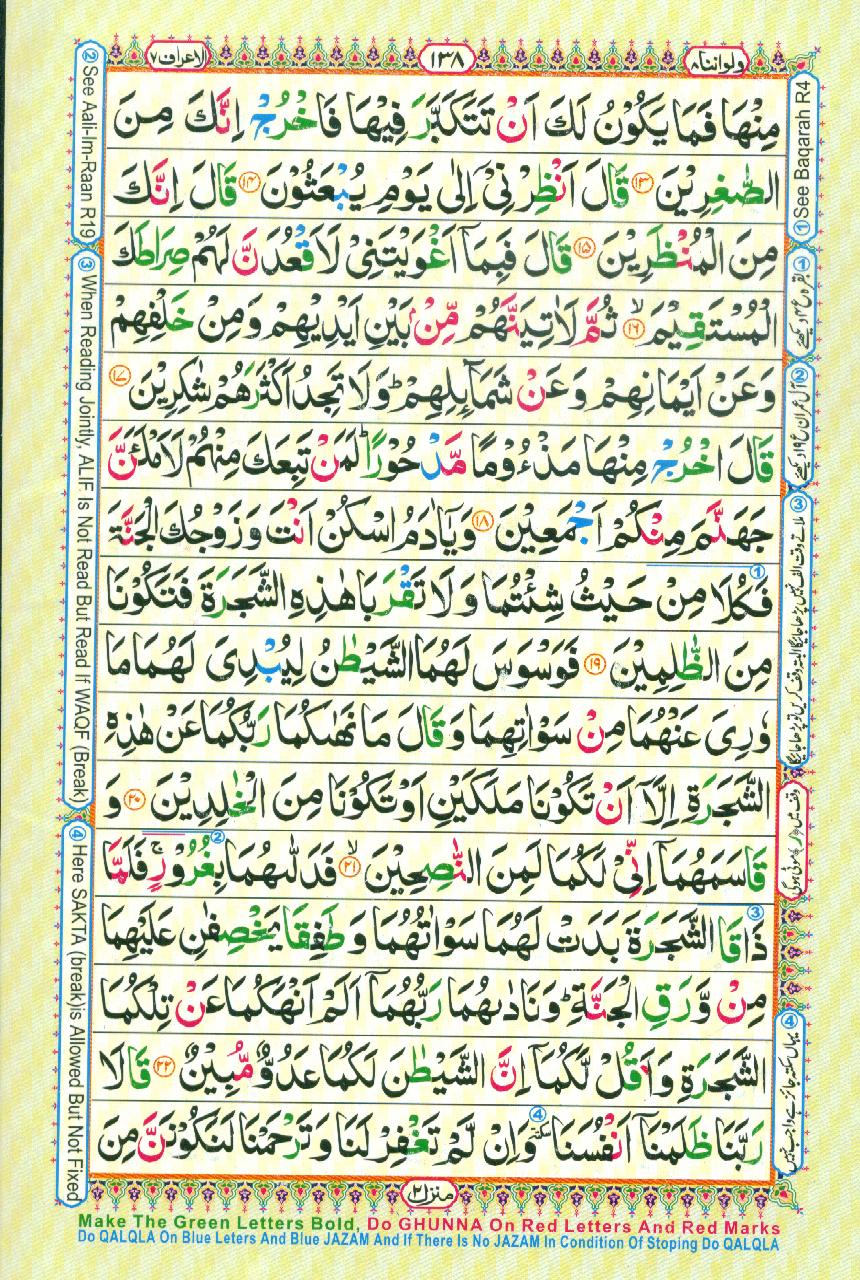 ولواننا ۸
۱۳۸
الاعراف ۷
مِنْهَا فَمَا يَكُوْنُ لَكَ اَنْ تَتَكَبَّرَ فِيْهَا فَاخْرُجْ اِنَّكَ مِنَ
الصّٰغِرِيْنَ ﴿۱۳﴾ قَالَ اَنْظِرْنِيْۤ اِلٰى يَوْمِ يُبْعَثُوْنَ ﴿۱۴﴾ قَالَ اِنَّكَ
مِنَ الْمُنْظَرِيْنَ ﴿۱۵﴾ قَالَ فَبِمَاۤ اَغْوَيْتَنِيْ لَاَقْعُدَنَّ لَهُمْ صِرَاطَكَ
الْمُسْتَقِيْمَ ﴿۱۶﴾ۙ ثُمَّ لَاٰتِيَنَّهُمْ مِّنْۢ بَيْنِ اَيْدِيْهِمْ وَمِنْ خَلْفِهِمْ
وَعَنْ اَيْمَانِهِمْ وَعَنْ شَمَآئِلِهِمْ ؕ وَلَا تَجِدُ اَكْثَرَهُمْ شٰكِرِيْنَ ﴿۱۷﴾
قَالَ اخْرُجْ مِنْهَا مَذْءُوْمًا مَّدْحُوْرًا ؕ لَمَنْ تَبِعَكَ مِنْهُمْ لَاَمْلَئَنَّ
جَهَنَّمَ مِنْكُمْ اَجْمَعِيْنَ ﴿۱۸﴾ وَيٰۤاٰدَمُ اسْكُنْ اَنْتَ وَزَوْجُكَ الْجَنَّةَ
فَكُلَا مِنْ حَيْثُ شِئْتُمَا وَلَا تَقْرَبَا هٰذِهِ الشَّجَرَةَ فَتَكُوْنَا ①
مِنَ الظّٰلِمِيْنَ ﴿۱۹﴾ فَوَسْوَسَ لَهُمَا الشَّيْطٰنُ لِيُبْدِيَ لَهُمَا مَا
وٗرِيَ عَنْهُمَا مِنْ سَوْاٰتِهِمَا وَقَالَ مَا نَهٰىكُمَا رَبُّكُمَا عَنْ هٰذِهِ
الشَّجَرَةِ اِلَّاۤ اَنْ تَكُوْنَا مَلَكَيْنِ اَوْ تَكُوْنَا مِنَ الْخٰلِدِيْنَ ﴿۲۰﴾ وَ
قَاسَمَهُمَاۤ اِنِّيْ لَكُمَا لَمِنَ النّٰصِحِيْنَ ﴿۲۱﴾ۙ فَدَلّٰىهُمَا بِغُرُوْرٍ ۚ ② فَلَمَّا
ذَاقَا الشَّجَرَةَ بَدَتْ لَهُمَا سَوْاٰتُهُمَا وَطَفِقَا يَخْصِفٰنِ عَلَيْهِمَا ③
مِنْ وَّرَقِ الْجَنَّةِ ؕ وَنَادٰىهُمَا رَبُّهُمَاۤ اَلَمْ اَنْهَكُمَا عَنْ تِلْكُمَا
الشَّجَرَةِ وَاَقُلْ لَّكُمَاۤ اِنَّ الشَّيْطٰنَ لَكُمَا عَدُوٌّ مُّبِيْنٌ ﴿۲۲﴾ قَالَا
رَبَّنَا ظَلَمْنَاۤ اَنْفُسَنَا سكتة ④ وَاِنْ لَّمْ تَغْفِرْ لَنَا وَتَرْحَمْنَا لَنَكُوْنَنَّ مِنَ
منزل ۲
① See Baqarah R4
① بقرہ ع ۴ دیکھئے
② آل عمران ع ۱۹ دیکھئے
③ ملاتے وقت الف نہیں پڑھا جائیگا البتہ وقف کریں تو پڑھا جائیگا
وقف میں (ر) موٹی ہوگی
④ یہاں سکتہ جائز ہے واجب نہیں
② See Aali-Im-Raan R19
③ When Reading Jointly, ALIF Is Not Read But Read If WAQF (Break)
④ Here SAKTA (break)is Allowed But Not Fixed
Make The Green Letters Bold, Do GHUNNA On Red Letters And Red Marks
Do QALQLA On Blue Leters And Blue JAZAM And If There Is No JAZAM In Condition Of Stoping Do QALQLA